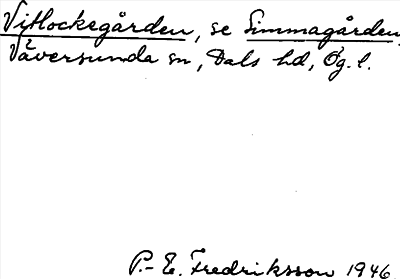 Vitlockegården, se Simmagården,
Väversunda sn, Dals hd, Ög. l.
P.-E. Fredriksson 1946